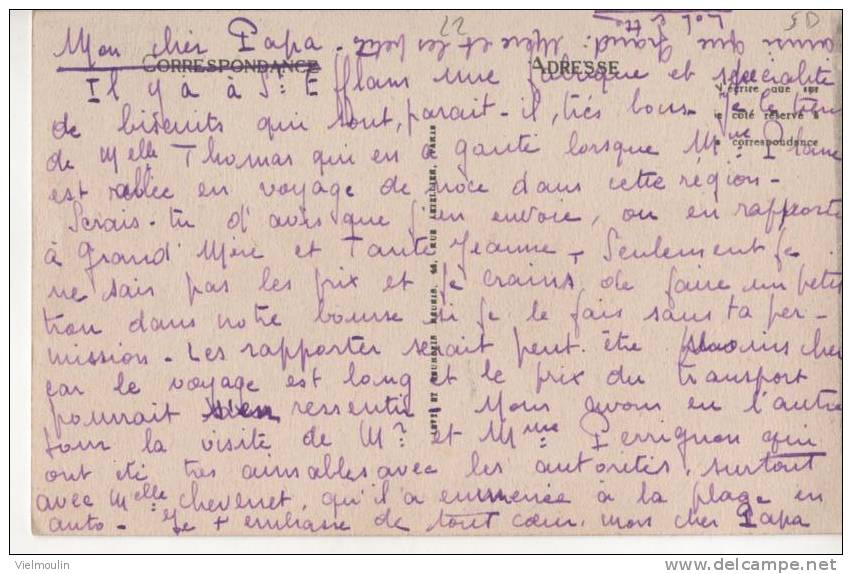 Mon cher Papa -
CORRESPONDANCE
ADRESSE
22
5D
Il y a à St Efflam une fabrique et spécialité
de biscuits qui sont, parait-il, très bons - Je le tiens
de Melle Thomas qui en a gouté lorsque Mme
est allée en voyage de noce dans cette région -
Serais-tu d'avis que j'en envoie, ou en rapporte
à Grand' Mère et Tante Jeanne - Seulement je
ne sais pas les prix et je crains de faire un petit
trou dans notre bourse si je le fais sans ta per-
mission - Les rapporter serait peut-être moins cher
car le voyage est long et le prix du transport
pourrait s'en ressentir Nous avons eu l'autre
jour la visite de Mr et Mme Perrignon qui
ont été très aimables avec les autorités, surtout
avec Melle Chevenet, qu'il a emmenée à la plage en
auto - Je t embrasse de tout cœur, mon cher Papa
ainsi que Grand' Mère et les petits
N'écrire que sur
le côté réservé à
la correspondance
Vielmoulin
delcampe.net